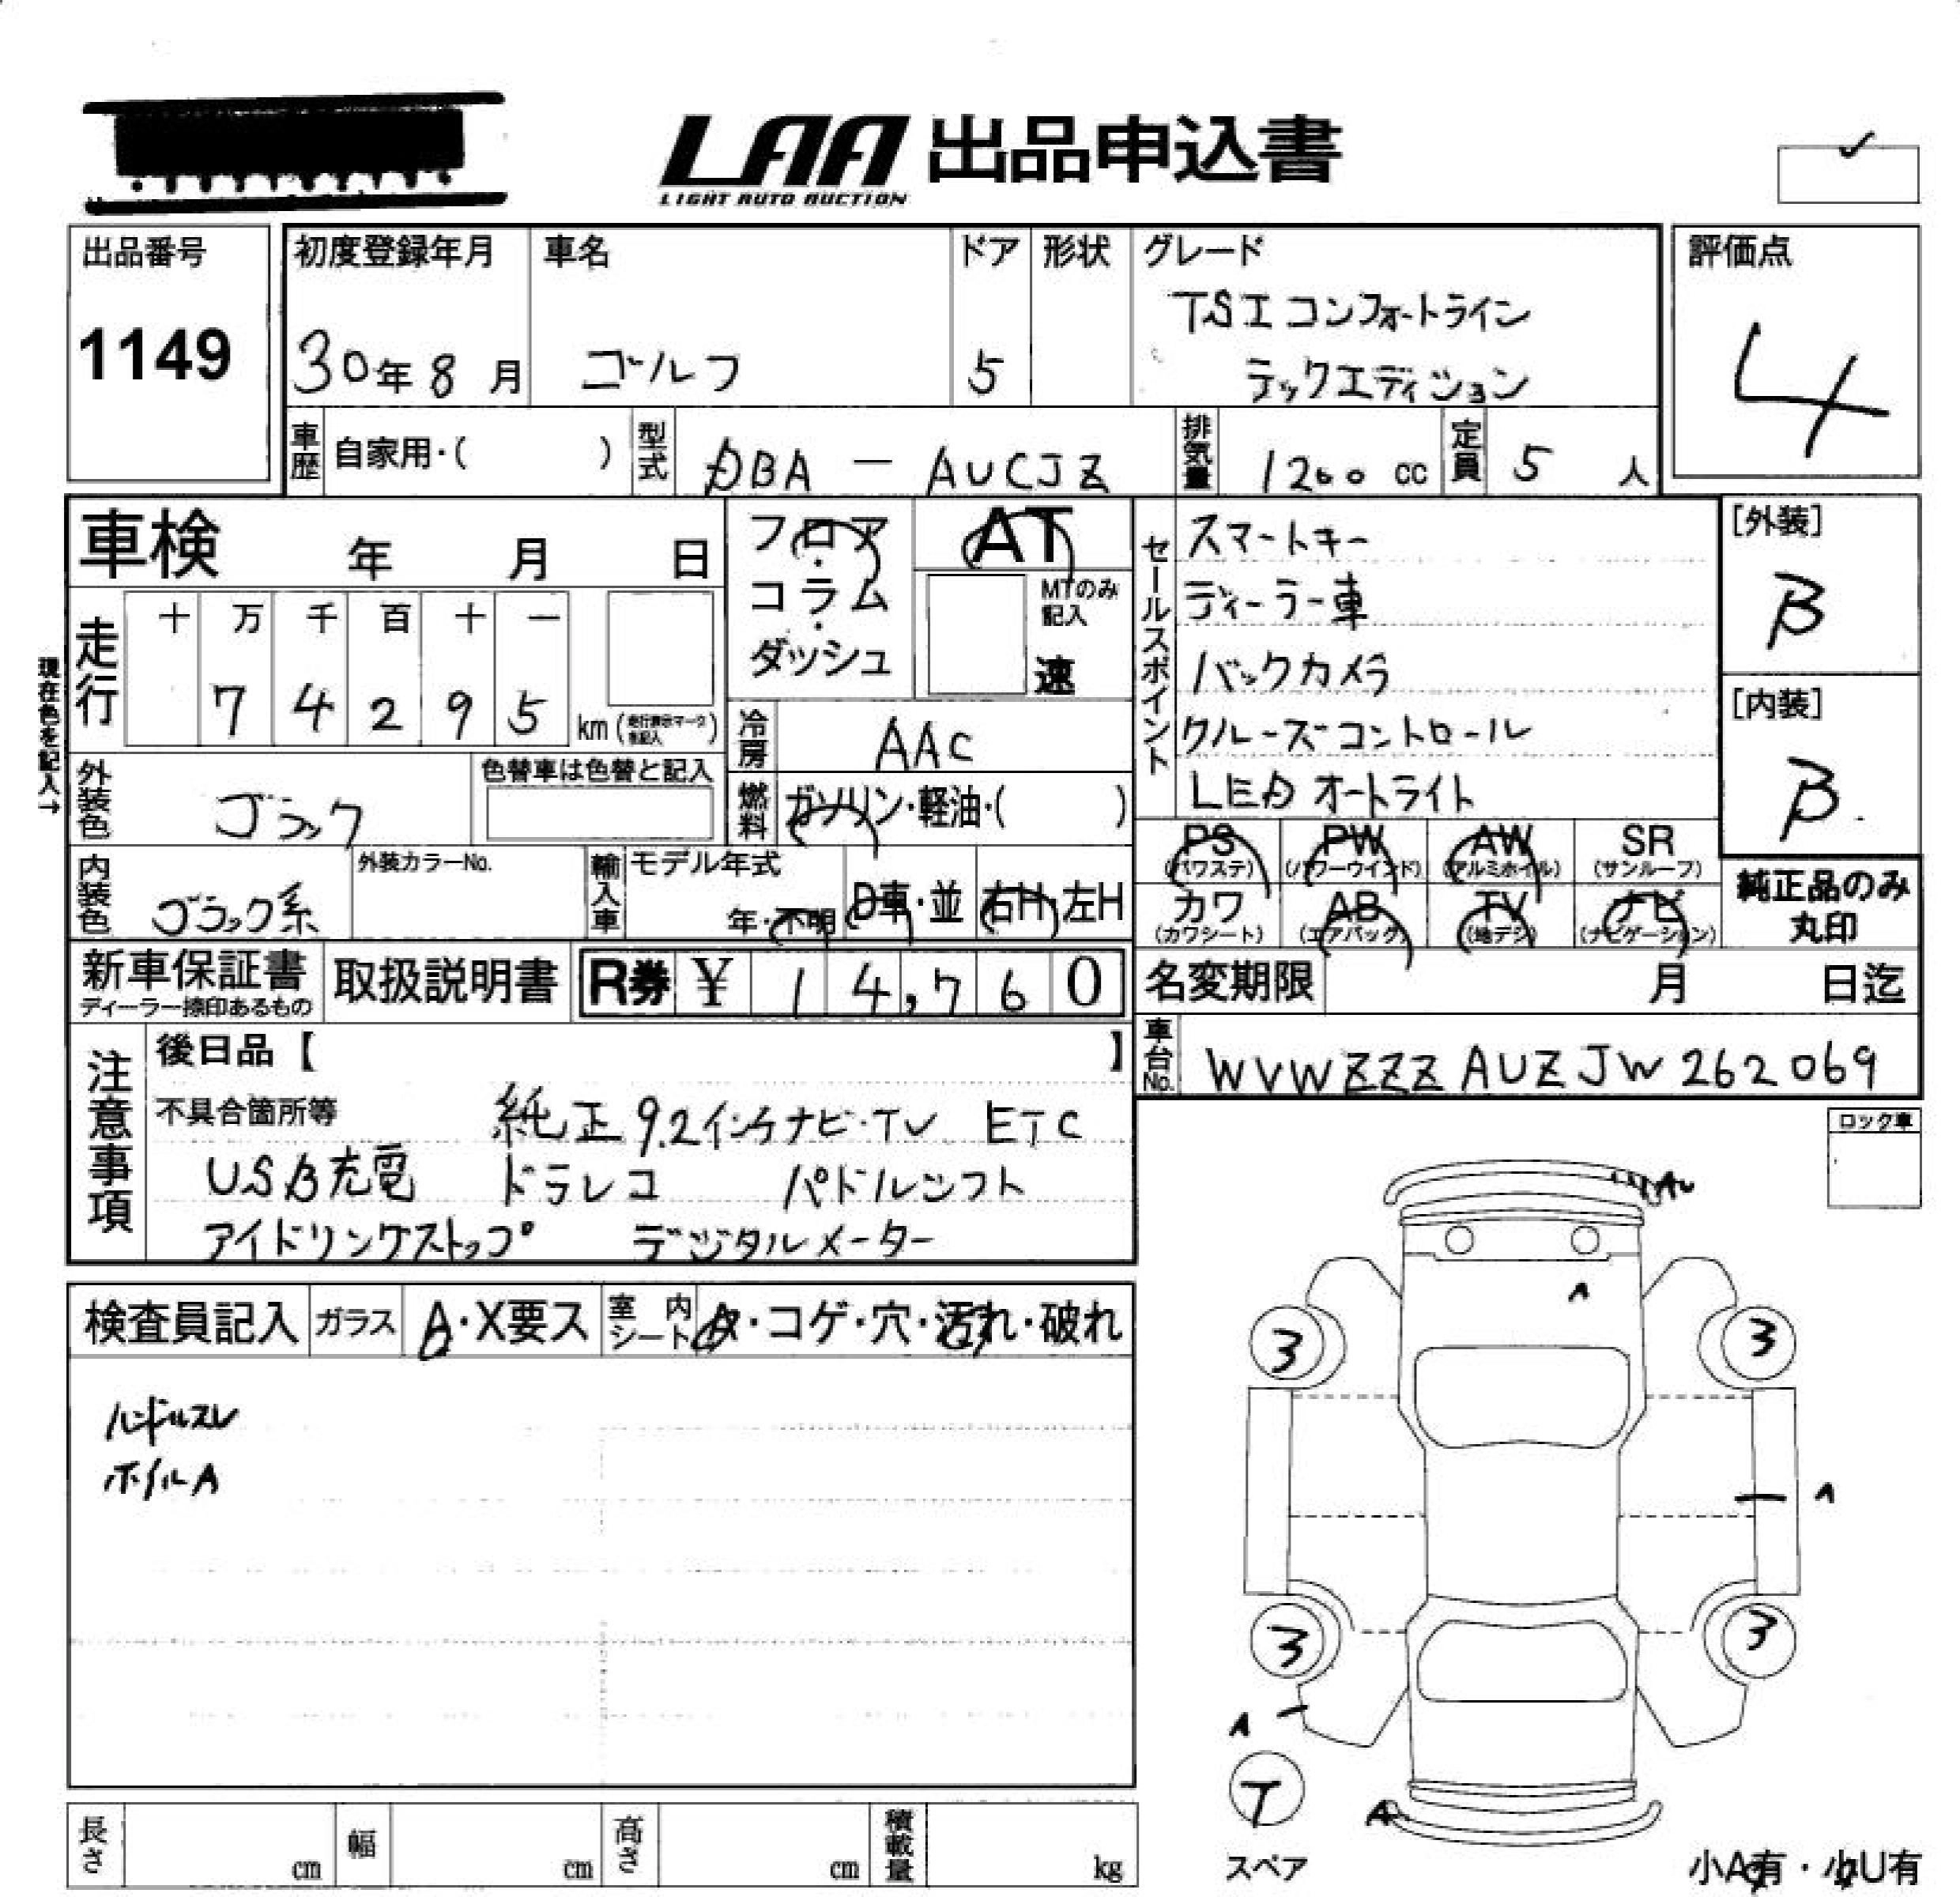 LAA 出品申込書
LIGHT AUTO AUCTION
出品番号
1149
初度登録年月
30年8月
車名
ゴルフ
ドア
5
形状
グレード
TSI コンフォートライン
テックエディション
評価点
4
車歴 自家用・( )
型式 DBA - AUCJZ
排気量 1200 cc
定員 5 人
車検 年 月 日
走行
十 万 千 百 十 一
7 4 2 9 5
km (走行表示マーク 
現在色を記入→
フロア
・
コラム
・
ダッシュ
AT
MTのみ
記入
速
冷房 AAC
燃料 ガソリン・軽油・( )
外装色 ブラック
色替車は色替と記入
内装色 ブラック系
外装カラーNo.
輸入車 モデル年式
年・不明
D車・並
右H・左H
セールスポイント
スマートキー
ディーラー車
バックカメラ
クルーズコントロール
LED オートライト
[外装]
B
[内装]
B
PS
(パワステ)
PW
(パワーウインド)
AW
(アルミホイル)
SR
(サンルーフ)
カワ
(カワシート)
AB
(エアバック)
TV
(地デジ)
ナビ
(ナビゲーション)
純正品のみ
丸印
新車保証書
ディーラー捺印あるもの
取扱説明書
R券 ¥ 1 4,7 6 0
名変期限 月 日迄
車台No. WVWZZZAUZJW262069
注意事項
後日品【 】
不具合箇所等 純正9.2インチナビ・TV ETC
USB充電 ドラレコ パドルシフト
アイドリングストップ デジタルメーター
ロック車
検査員記入
ガラス
A・X要ス
室内シート
A・コゲ・穴・汚れ・破れ
ハンドルスレ
ホイルA
AU
A
3
3
A
3
3
A
T
スペア
A
小A有・小U有
長さ cm
幅 cm
高さ cm
積載量 kg